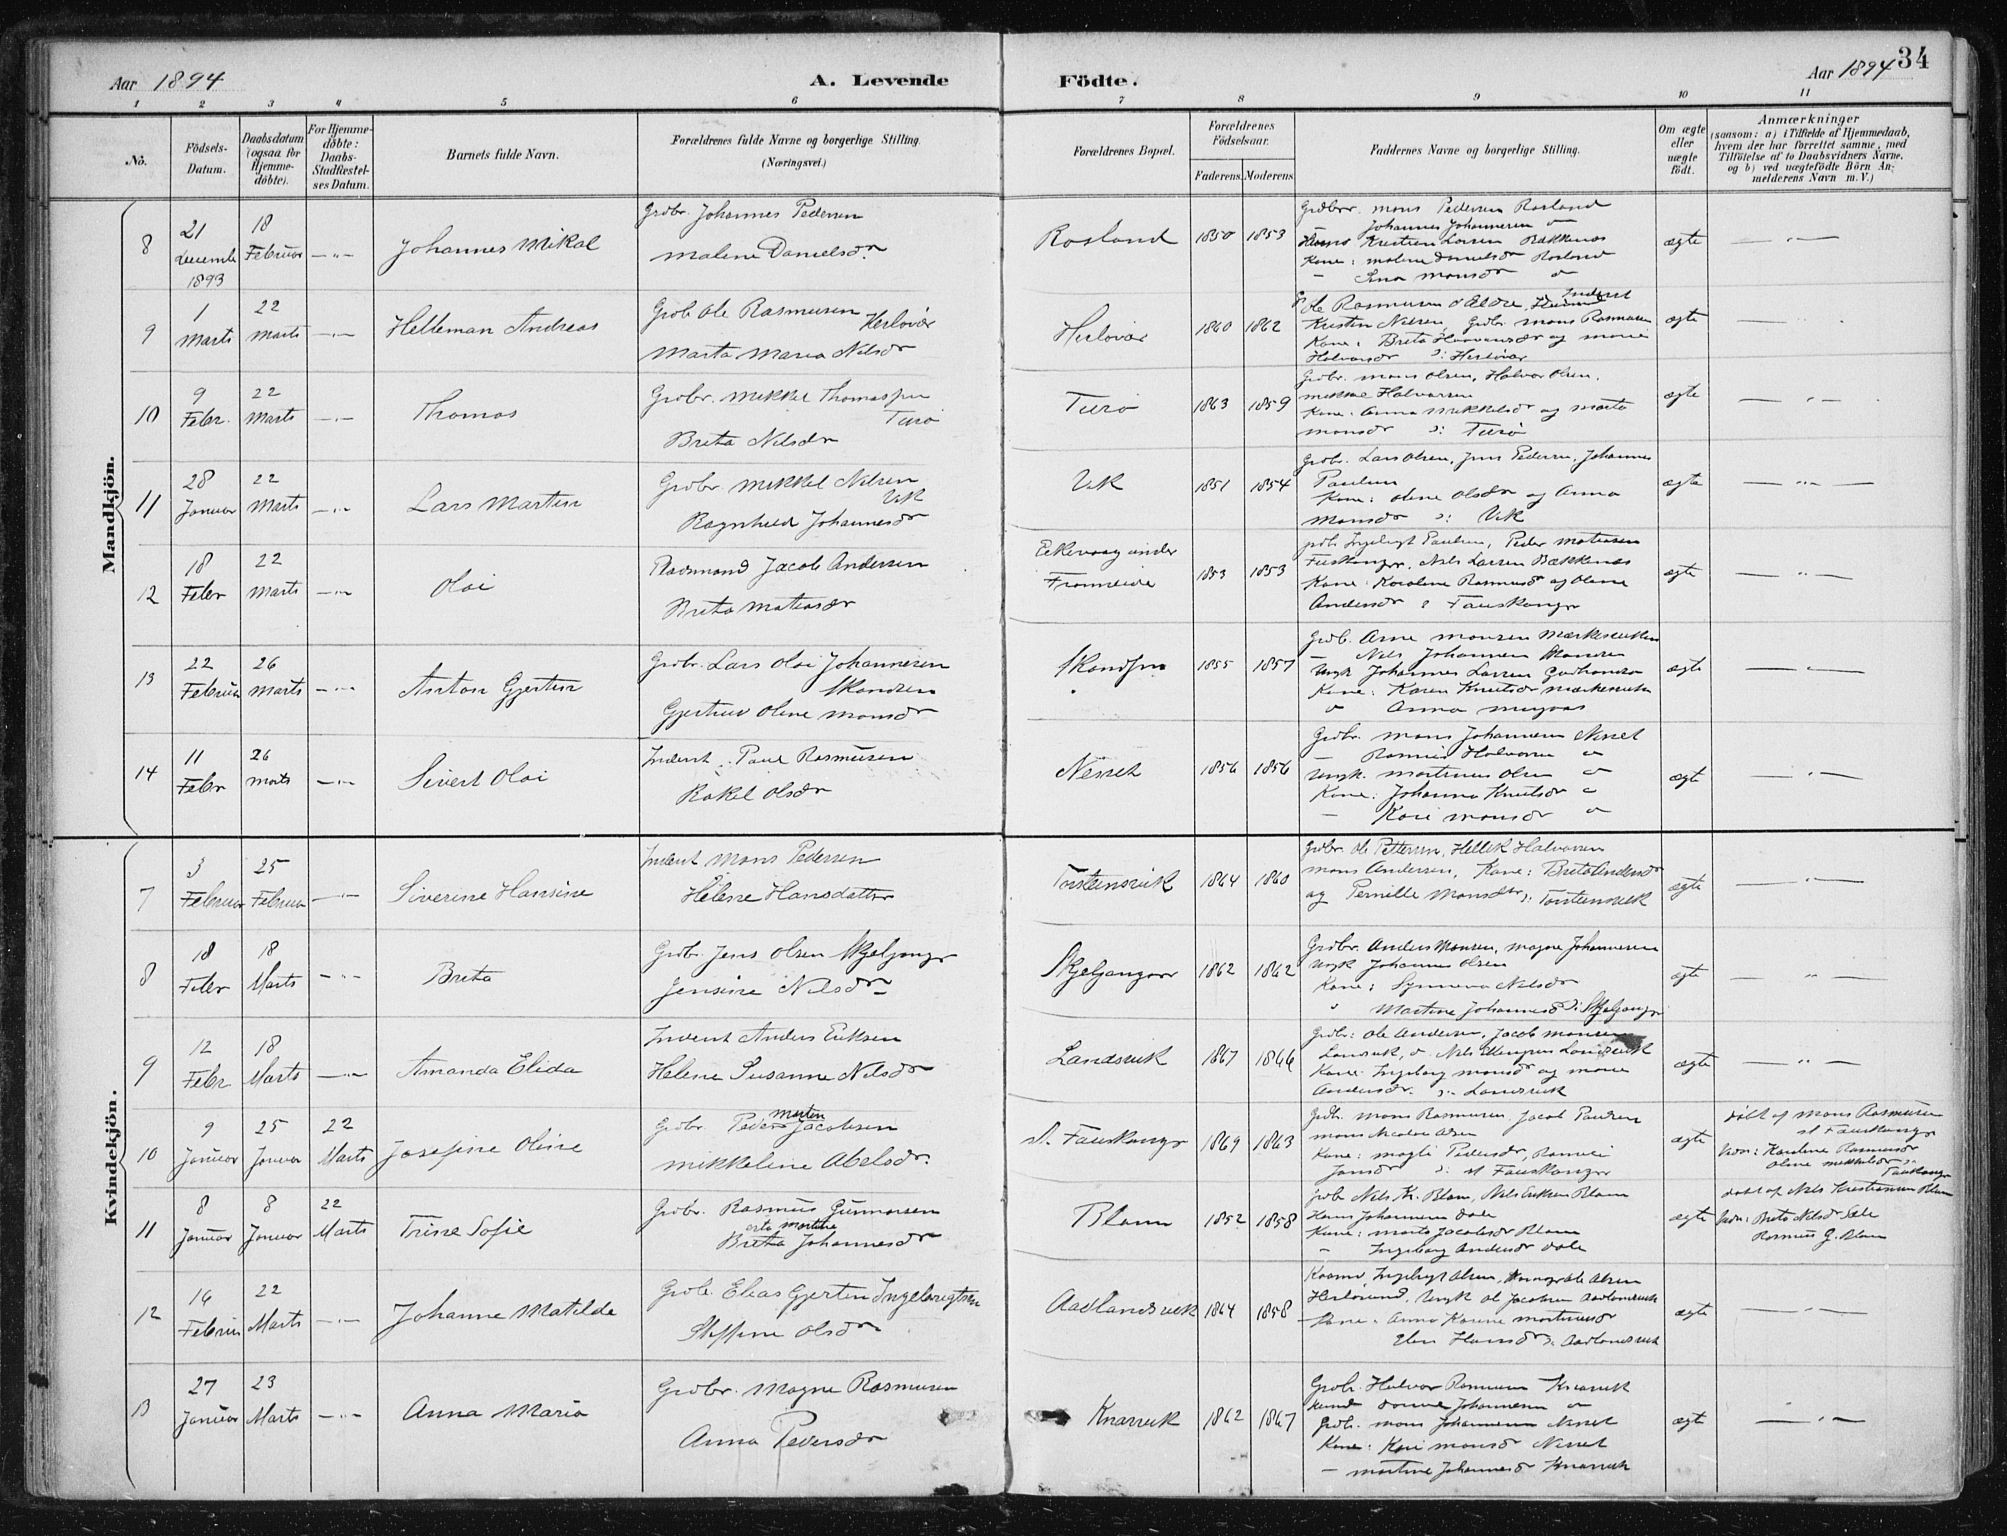 Aar 1894
A. Levende
Födte.
Aar 1894
34
1 2 3 4 5 6 7 8 9 10 11
No.
Födsels-Datum.
Daabsdatum (ogsaa for Hjemme-döbte).
For Hjemme-döbte: Daabs-Stadfæstel-ses Datum.
Barnets fulde Navn.
Forældrenes fulde Navne og borgerlige Stilling. (Næringsvei.)
Forældrenes Bopæl.
Forældrenes Födselsaar.
Faderens. Moderens.
Faddernes Navne og borgerlige Stilling.
Om ægte eller uægte födt.
Anmærkninger (saasom: a) i Tilfælde af Hjemmedaab, hvem der har forrettet samme, med Tilföielse af to Daabsvidners Navne, og b) ved uægtefödte Börn Anmelderens Navn m. V.)
Mandkjön.
8
21 Decembr 1893
18 Februar
Johannes Mikal
Grdbr. Johannes Pedersen
Malene Danielsdr.
Rosland
1850 1853
Grdbrr. Mons Pedersen Rosland
Johannes Johannesen
Kristian Larsen Bakkenes
Kone: Malene Danielsdr Rosland
Sina Monsdr
ægte
9
1 Marts
22 Marts
Helleman Andreas
Grdb Ole Rasmusen Herlovær
Marta Maria Nilsdr
Herlovær
1860 1862
Ole Rasmusen
Kristen Nilsen, Grdbr. Mons Rasmusen
Kone: Breta
Halvorsdr ɔ: Herlovær
ægte
10
9 Febr.
22 Marts
Thomas
Grdbr. Mikkel Thomassen Turö
Breta Nilsdr
Turö
1863 1859
Grdbr. Mons Olsen, Halvor Olsen,
Mikkel Halvorsen
Kone: Anna Mikkelsdr og Marta
Monsdr ɔ: Turö
ægte
11
28 Januar
22 Marts
Lars Martin
Grdbr. Mikkel Nilsen Vik
Ragnhild Johannesdr
Vik
1851 1854
Grdb. Lars Olsen, Jens Pedersen, Johannes
Paulsen
Kone: Oline Olsdr og Anna
Monsdr ɔ: Vik
ægte
12
18 Febr
22 Marts
Olai
Jacob Andersen
Breta Matiasdr
Eikevaag under
Fromreide
1853 1853
Ingebrigt Paulsen, Peder Matiasen
Fuskanger, Nils Larsen Bakkenes
Kone: Karoline Rasmusdr og Oline
Andersdr Fauskanger
ægte
13
22 Februar
26 Marts
Anton Gjertin
Grdbr. Lars Olai Johannesen
Skandsen
Gjertrud Oline Monsdr
Skandsen
1855 1857
Grdb. Arne Monsen
Nils Johannesen
Ungk Johannes Larsen
Kone: Karen Knutsdr
Anna
ægte
14
11 Febr
26 Marts
Sivert Olai
Inderst Paul Rasmusen
Rakel Olsdr
Nesset
1856 1856
Grdbr. Mons Johannesen Nesset
Halvorsen
Ungk. Martinus Olsen
Kone: Johanna Knutsdr
Kari Monsdr
ægte
Kvindekjön.
7
3 Februar
25 Februar
Siverine Hansine
Inderst Mons Pedersen
Helene Hansdatter
Torsteinsvik
1864 1860
Grdbr. Ole Pettersen, Hellik Halvorsen
Mons Andersen, Kone: Breta Andersdr
og Pernille Monsdtr ɔ: Torsteinsvik
ægte
8
18 Febr
18 Marts
Breta
Grdbr. Jens Olsen Skjeljanger
Jensine Nilsdr
Skjeljanger
1862 1862
Grdbr. Anders Monsen, Magne Johannesen
Ungk Johannes Olsen
Kone: Synneva Nilsdr
Martine Johannesdr ɔ: Skjeljanger
ægte
9
12 Febr
18 Marts
Amanda Elida
Inderst Anders Eriksen
Helene Susanne Nilsdr
Landsvik
1867 1866
Grdbr: Ole Andersen, Jacob Monsen
Landsvik, Nils Landsvik
Kone: Ingeborg Monsdr og
Andersdr. ɔ: Landsvik
ægte
10
9 Januar
25 Januar
22 Marts
Josefine Oline
Grdbr. Peder Morten Jacobsen
Mikkeline Abelsdr.
St. Fauskanger
1869 1863
Grdbr. Mons Rasmusen, Jacob Paulsen
Mons Nicolai Olsen
Kone: Magli Pedersdr,
Jansdr ɔ: St Fauskanger
ægte
döbt af Mons Rasmusen
St Fauskanger
Vidn: Karoline Rasmusdr
Oline Mikkelsdr ɔ: Fauskanger
11
8 Januar
8 Januar
22 Marts
Trine Sofie
Grdbr. Rasmus Gunnarsen
Breta Johannesdr
Blom
1852 1858
Grdb Nils Kr. Blom, Nils Eriksen Blom
Hans Johannesen Dale
Kone: Marta Jacobsdr Blom
Ingeborg Andersdr Dale
ægte
döbt af Nils Kristiansen Blom
Vidn: Breta Nilsdr Sæle
Rasmus G. Blom
12
16 Februar
22 Marts
Johanne Matilde
Grdb. Elias Gjertin Ingebrigtsen
Steffine Olsdr
Aadlandsvik
1864 1858
Ingebrigt Olsen, Olsen
Herlösund, Ungk Ole Jacobsen Aadlandsvik
Kone: Anna Karine Martinusdr
Elen Hansdr ɔ: Aadlandsvik
ægte
13
27 Januar
23 Marts
Anna Maria
Grdbr. Magne Rasmusen
Anna Pedersdr
Knarrvik
1862 1867
Grdb. Halvor Rasmusen Knarvik
Johannesen
Grdb. Mons Johannesen Nesset
Kone: Kari Monsdr Nesset
Martine Johannesdr Knarvik
ægt